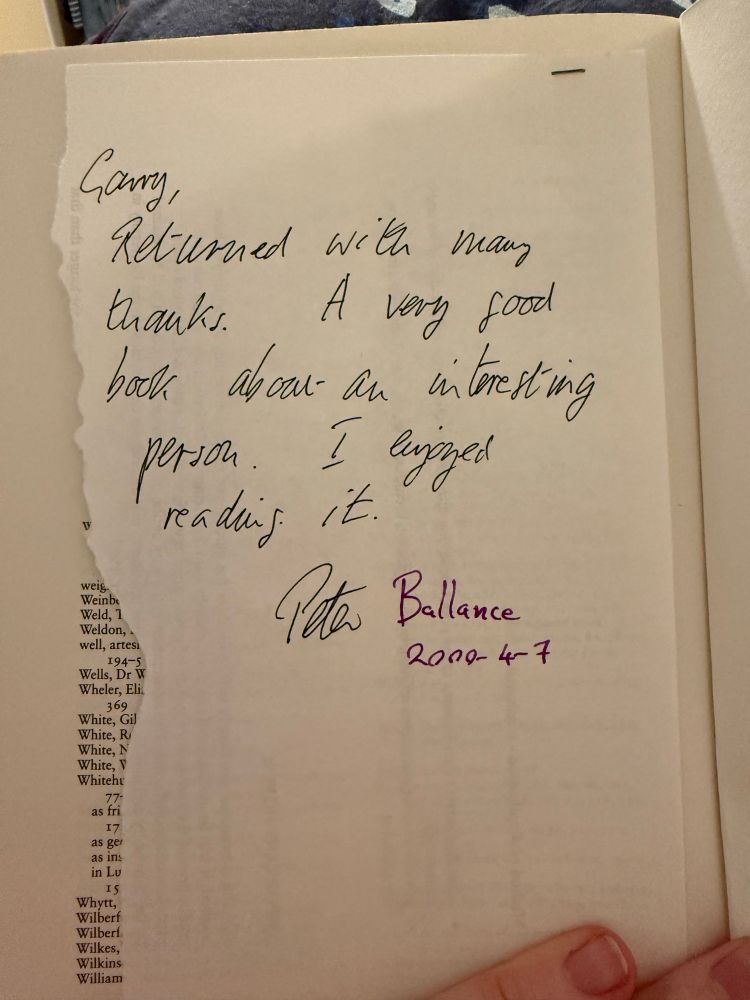 Garry,
Returned with many
thanks. A very good
book about an interesting
person. I enjoyed
reading it.
Peter Ballance
2000-4-7
W
weig
Weinb
Weld, T
Weldon,
well, artesi
194–5
Wells, Dr W
Wheler, Eli
369
White, Gil
White, R
White, N
White, W
Whitehu
77-
as fri
17
as ge
as ins
in Lu
15
Whytt,
Wilberf
Wilberf
Wilkes,
Wilkins
William